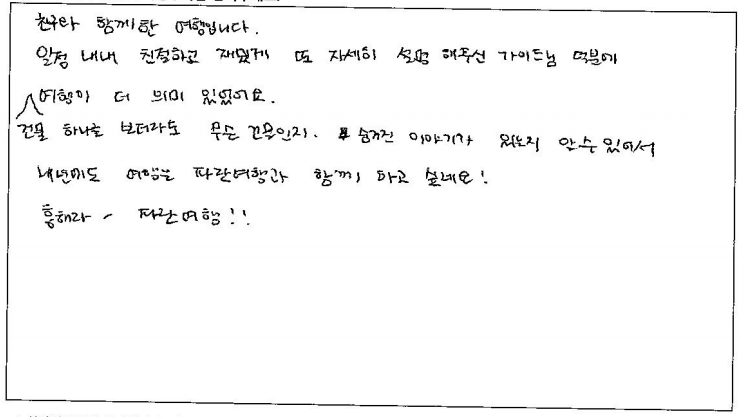 친구와 함께한 여행입니다.
일정 내내 친절하고 재밌게 또 자세히 설명 해주신 가이드님 덕분에
여행이 더 의미 있었어요.
건물 하나를 보더라도 무슨 건물인지. 숨겨진 이야기가 있는지 알 수 있어서
내년에도 여행은 파란여행과 함께 하고 싶네요!
흥해라~ 파란여행!!